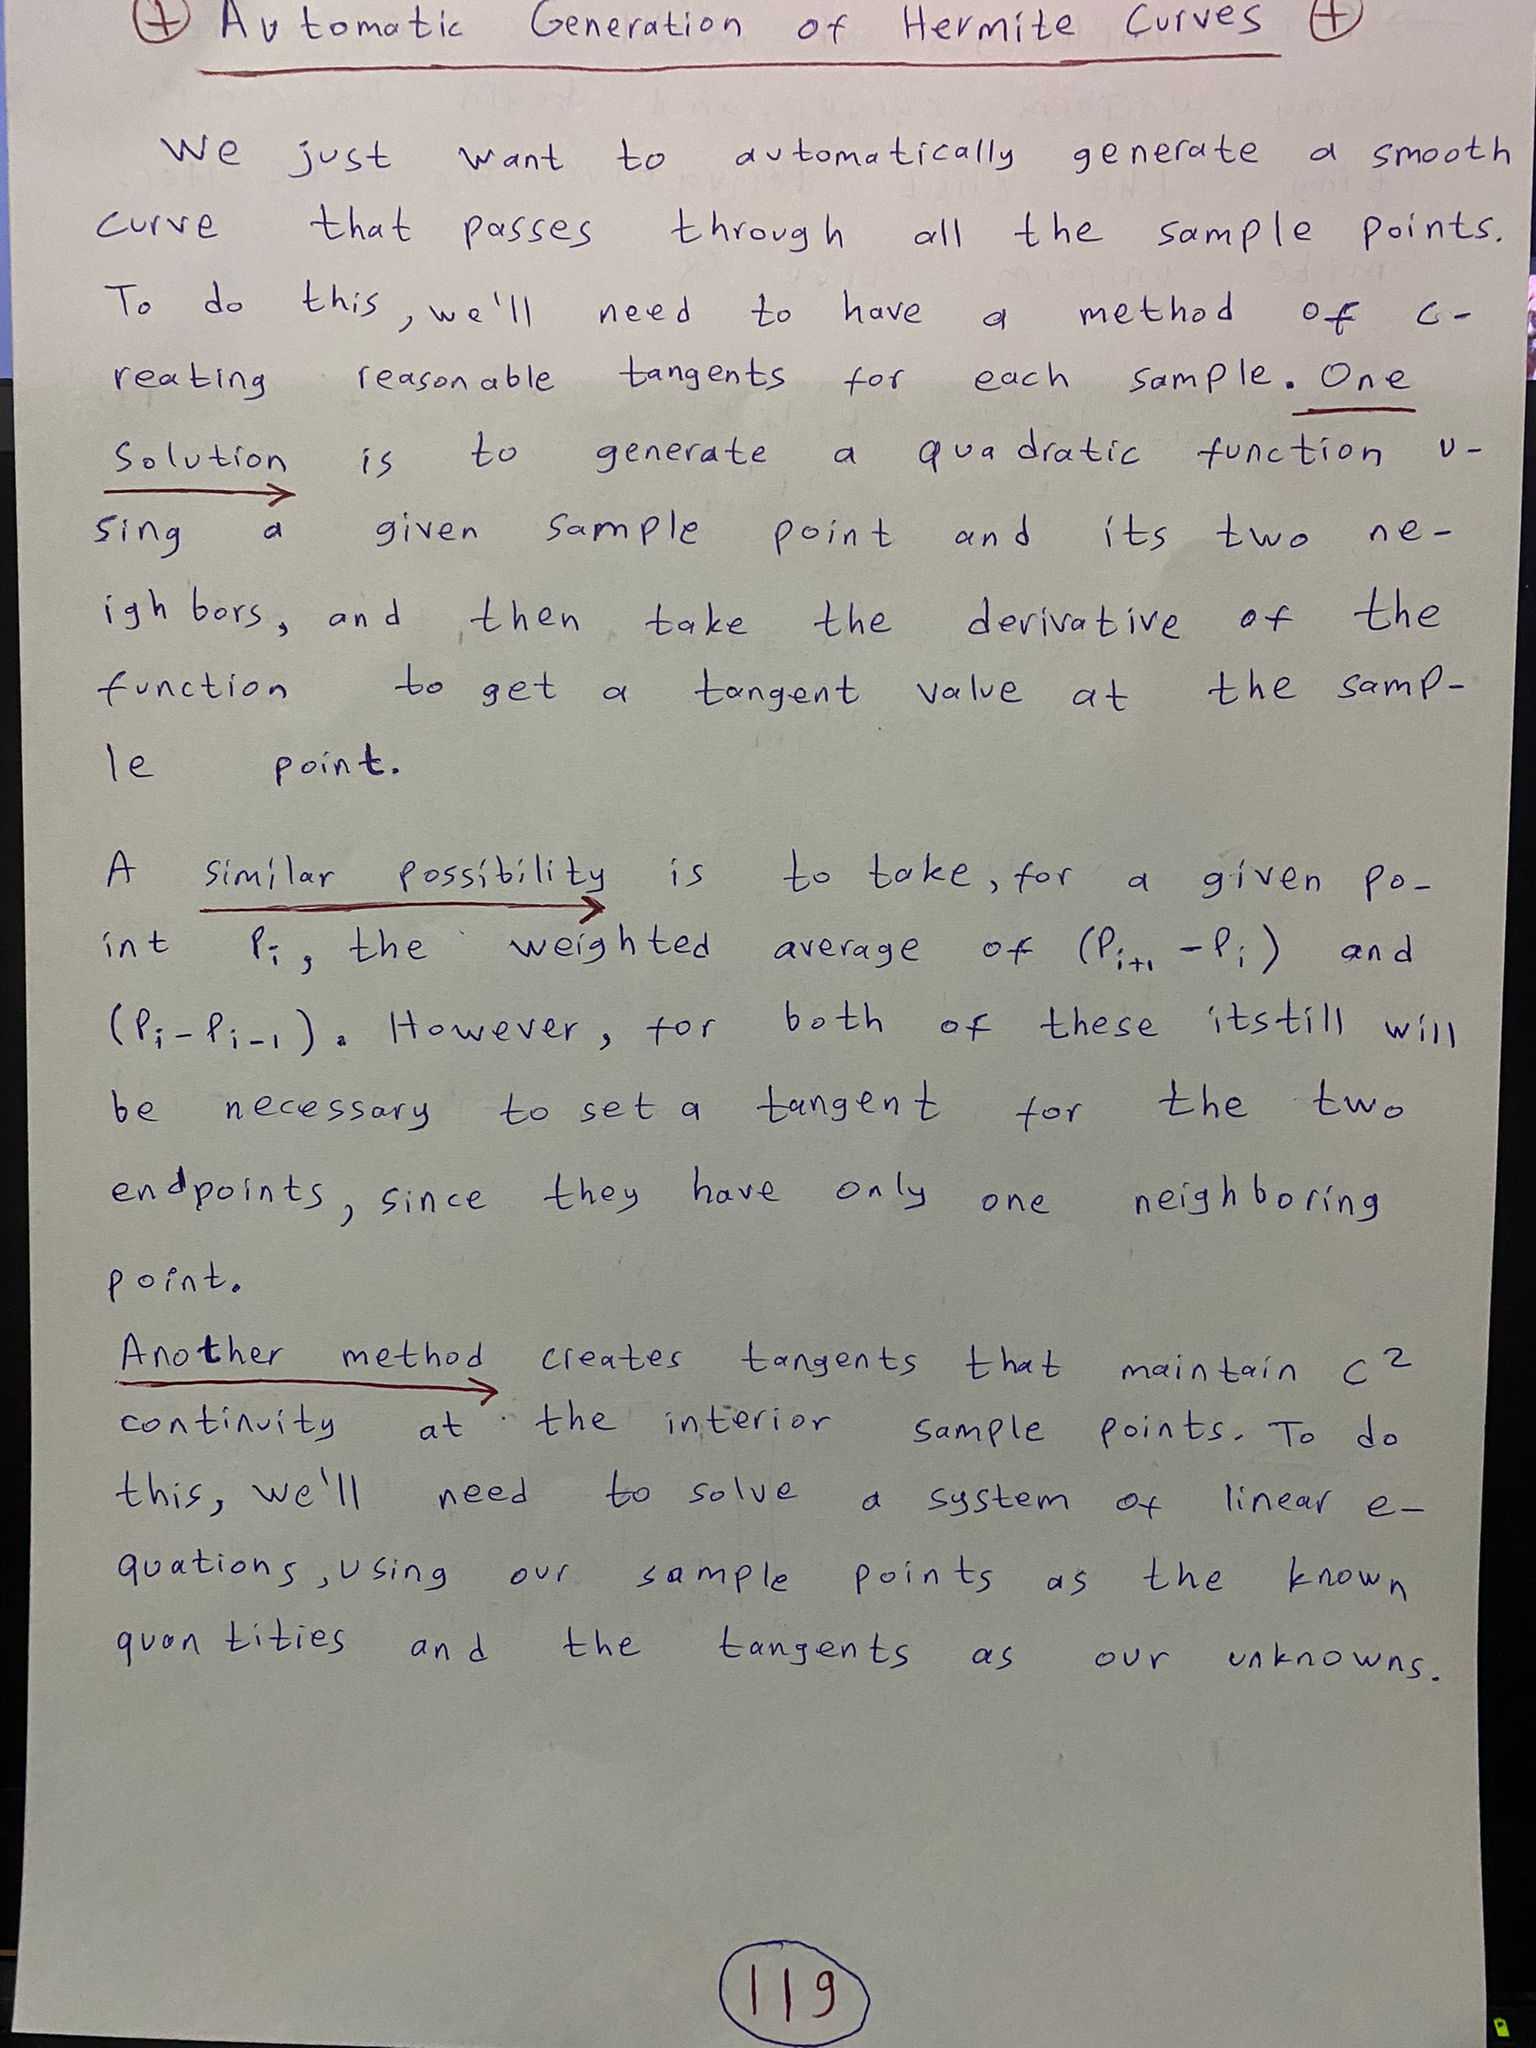 ⊕ Automatic Generation of Hermite Curves ⊕
We just want to automatically generate a smooth
curve that passes through all the sample points.
To do this, we'll need to have a method of c-
reating reasonable tangents for each sample. One
solution is to generate a quadratic function u-
sing a given sample point and its two ne-
ighbors, and then take the derivative of the
function to get a tangent value at the samp-
le point.
A similar possibility is to take, for a given po-
int Pi, the weighted average of (Pi+1 - Pi) and
(Pi - Pi-1). However, for both of these itstill will
be necessary to set a tangent for the two
endpoints, since they have only one neighboring
point.
Another method creates tangents that maintain C²
continuity at the interior sample points. To do
this, we'll need to solve a system of linear e-
quations, using our sample points as the known
quantities and the tangents as our unknowns.
119